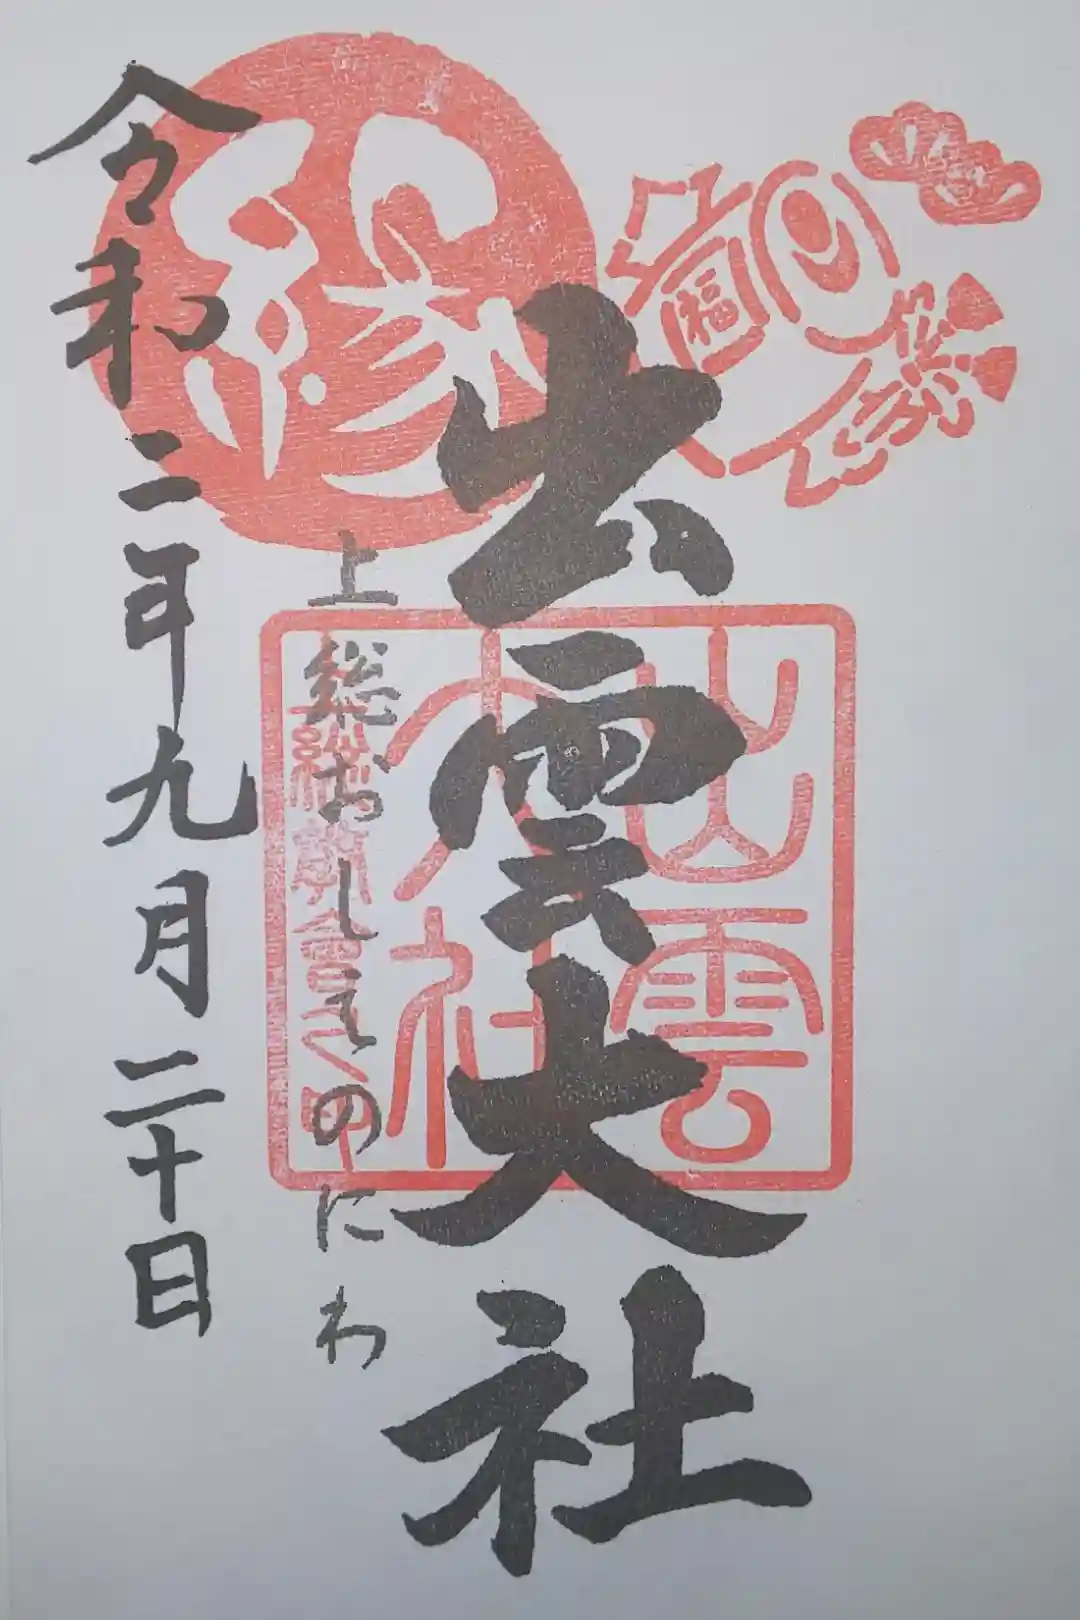 福
出雲大社
出雲
大社
縁
上総おしえのにわ
令和二年九月二十日